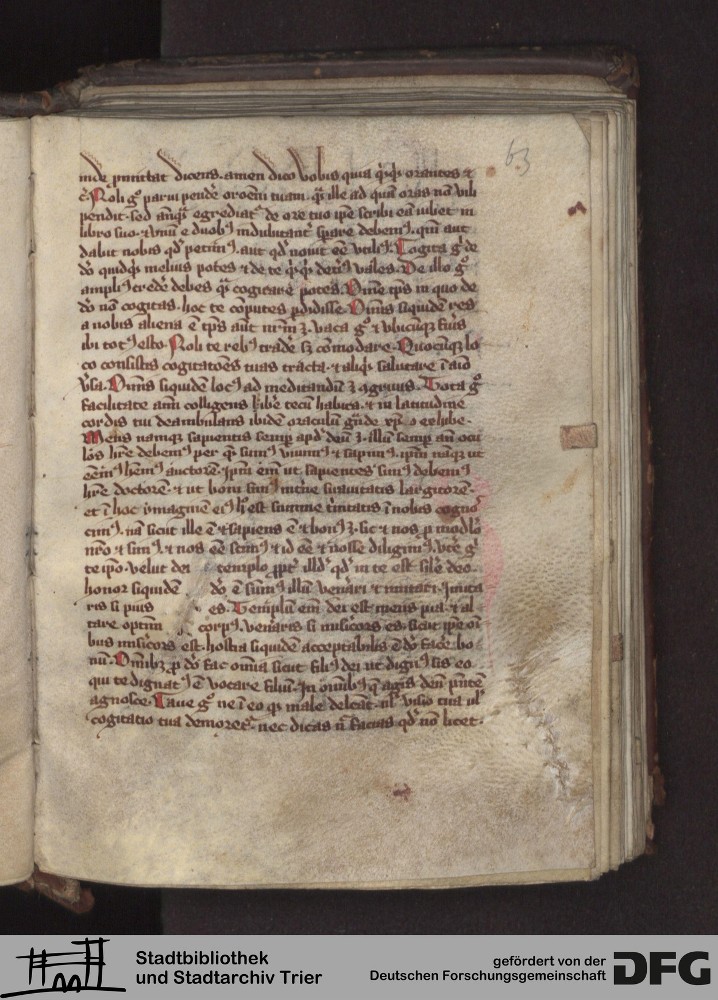 63
inde p̄mittat dicens. amen dico vobis quia q̄cq; orantes &
c̄. Noli g° parui pendē oroēm tuam. q̄ ille ad quā oras nō vili
pendit. sed anq̄ egrediat̄ de ore tuo ipē scribi eā iubet in
libro suo. & vnū e duob; indubitant̄ sp̄are debem;. qm̄ aut
dabit nobis qd̄ petim;. aut qd̄ nouit eē vtili;. Cogita g° de
dō quidq̄ melius potes & de te
ampli; credē debes q̄ cogitare potes. Om̄e tp̄s in quo de
dō nō cogitas. hoc te cōputes p̄didisse. Om̄s siquidem res
a nobis aliena ē tp̄s aūt nr̄m ÷. vaca g° & vbicūq; fu'is
ibi tot; esto. Noli te reb; tradē sꝫ cōmodare. Quocūq; lo
co consistis cogitatoēs tuas tracta. & aliq̄d salutare ī aīo
v'sa. Om̄is siquidem loc; ad meditandū ÷ ꝯgruus. Tota g°
facilitate aīm colligens libē tecū habita. & in latitudine
cordis tui deambulans ibidē oraculū exhibe.
Mens namq; sapientis semp̄ apd̄ deū ÷. illū semp̄ an̄ ocu
los hr̄e debem; per q̄ sum; viuim; & sapim;. ipm̄ naq; ut
hēm; auctorē. ipm̄ em̄ ut sapientes sim; debem;
hr̄e doctorē. & ut boni sim; int'ne suauitatis largitorē.
et ī hoc imaginē ei; h' est summe t'nitatis ī nobis cognos
cim;. nā sicut ille ē & sapiens ē & bon; ÷. sic & nos p̄ modlo
nr̄o & sim;. & nos eē scim; & id eē & nosse diligim;. vtē g°
te ipo. velut dei templo ꝓpt' illd̄ qd̄ in te est sīle deo.
honor siquidē dō ē sūm; illū ven'ari & imitari. imita
ris si pius es. Templū em̄ dei est mens pia. & al
tare optim corp;. ven'aris si mis'icors es. sicut ipe oī
bus mis'icors est. hostia siquidē acceptabilis ē dō facē bo
nū. Om̄ib; p̄ dō fac omnia sicut fili; dei ut dign; sis eo
qui te dignat; ē vocare filiū. In om̄ib; q̄ agis deū p̄ntē
agnosce. Caue g° ne ī eo q̄ male delc̄at. ul' visio tua ul'
cogitatio tua demoret̄. nec dicas ul' facias qd̄ nō licet.
Stadtbibliothek
und Stadtarchiv Trier
gefördert von der
Deutschen Forschungsgemeinschaft
DFG